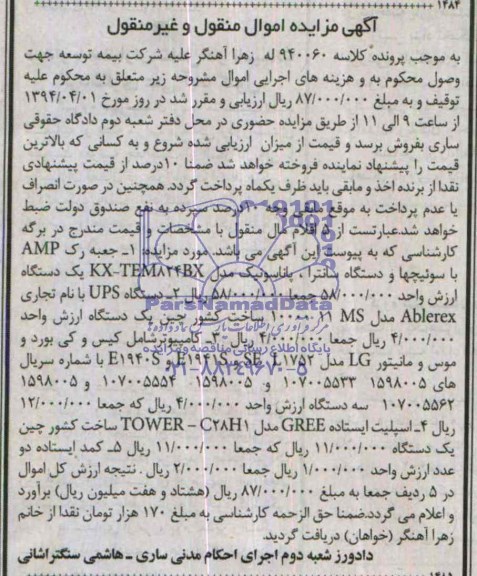 ۱۴۸۴
آگهی مزایده اموال منقول و غیرمنقول
به موجب پرونده کلاسه ۹۴۰۰۶۰ له زهرا آهنگر علیه شرکت بیمه توسعه جهت
وصول محکوم به و هزینه های اجرایی اموال مشروحه زیر متعلق به محکوم علیه
توقیف و به مبلغ ۸۷/۰۰۰/۰۰۰ ریال ارزیابی و مقرر شد در روز مورخ ۱۳۹۴/۰۴/۰۱
از ساعت ۹ الی ۱۱ از طریق مزایده حضوری در محل دفتر شعبه دوم دادگاه حقوقی
ساری بفروش برسد و قیمت از میزان ارزیابی شده شروع و به کسانی که بالاترین
قیمت را پیشنهاد نماینده فروخته خواهد شد ضمنا ۱۰درصد از قیمت پیشنهادی
نقدا از برنده اخذ و مابقی باید ظرف یکماه پرداخت گردد. همچنین در صورت انصراف
یا عدم پرداخت به موقع مابقی وجه ۱۰درصد سپرده به نفع صندوق دولت ضبط
خواهد شد.عبارتست از ۵ اقلام مال منقول با مشخصات و قیمت مندرج در برگه
کارشناسی که به پیوست این آگهی می باشد. مورد مزایده: ۱ـ جعبه رک AMP
با سوئیچها و دستگاه سانترال پاناسونیک مدل KX-TEM۸۲۴BX یک دستگاه
ارزش واحد ۵۸/۰۰۰/۰۰۰ جمعا ۵۸/۰۰۰/۰۰۰ ریال ۲ـ دستگاه UPS با نام تجاری
Ablerex مدل MS ساخت کشور چین یک دستگاه ارزش واحد
۴/۰۰۰/۰۰۰ ریال جمعا ۴/۰۰۰/۰۰۰ ریال ۳ـ کامپیوترشامل کیس و کی بورد و
موس و مانیتور LG مدل E۱۹۴۱S و E۱۹۴۰S با شماره سریال
های ۱۵۹۸۰۰۵ ۱۰۷۰۰۵۵۳۳ و ۱۵۹۸۰۰۵ ۱۰۷۰۰۵۵۵۴ و ۱۵۹۸۰۰۵
۱۰۷۰۰۵۵۶۲ سه دستگاه ارزش واحد ۴/۰۰۰/۰۰۰ ریال که جمعا ۱۲/۰۰۰/۰۰۰
ریال ۴ـ اسپلیت ایستاده GREE مدل TOWER – C۲۸H۱ ساخت کشور چین
یک دستگاه ۱۱/۰۰۰/۰۰۰ ریال که جمعا ۱۱/۰۰۰/۰۰۰ ریال ۵ـ کمد ایستاده دو
عدد ارزش واحد ۱/۰۰۰/۰۰۰ ریال جمعا ۲/۰۰۰/۰۰۰ ریال . نتیجه ارزش کل اموال
در ۵ ردیف جمعا به مبلغ ۸۷/۰۰۰/۰۰۰ ریال (هشتاد و هفت میلیون ریال) برآورد
و اعلام می گردد.ضمنا حق الزحمه کارشناسی به مبلغ ۱۷۰ هزار تومان نقدا از خانم
زهرا آهنگر (خواهان) دریافت گردید.
دادورز شعبه دوم اجرای احکام مدنی ساری ـ هاشمی سنگتراشانی
ParsNamadData
پایگاه اطلاع رسانی مناقصه ومزایده
۰۲۱-۸۸۳۴۹۶۷۰-۵